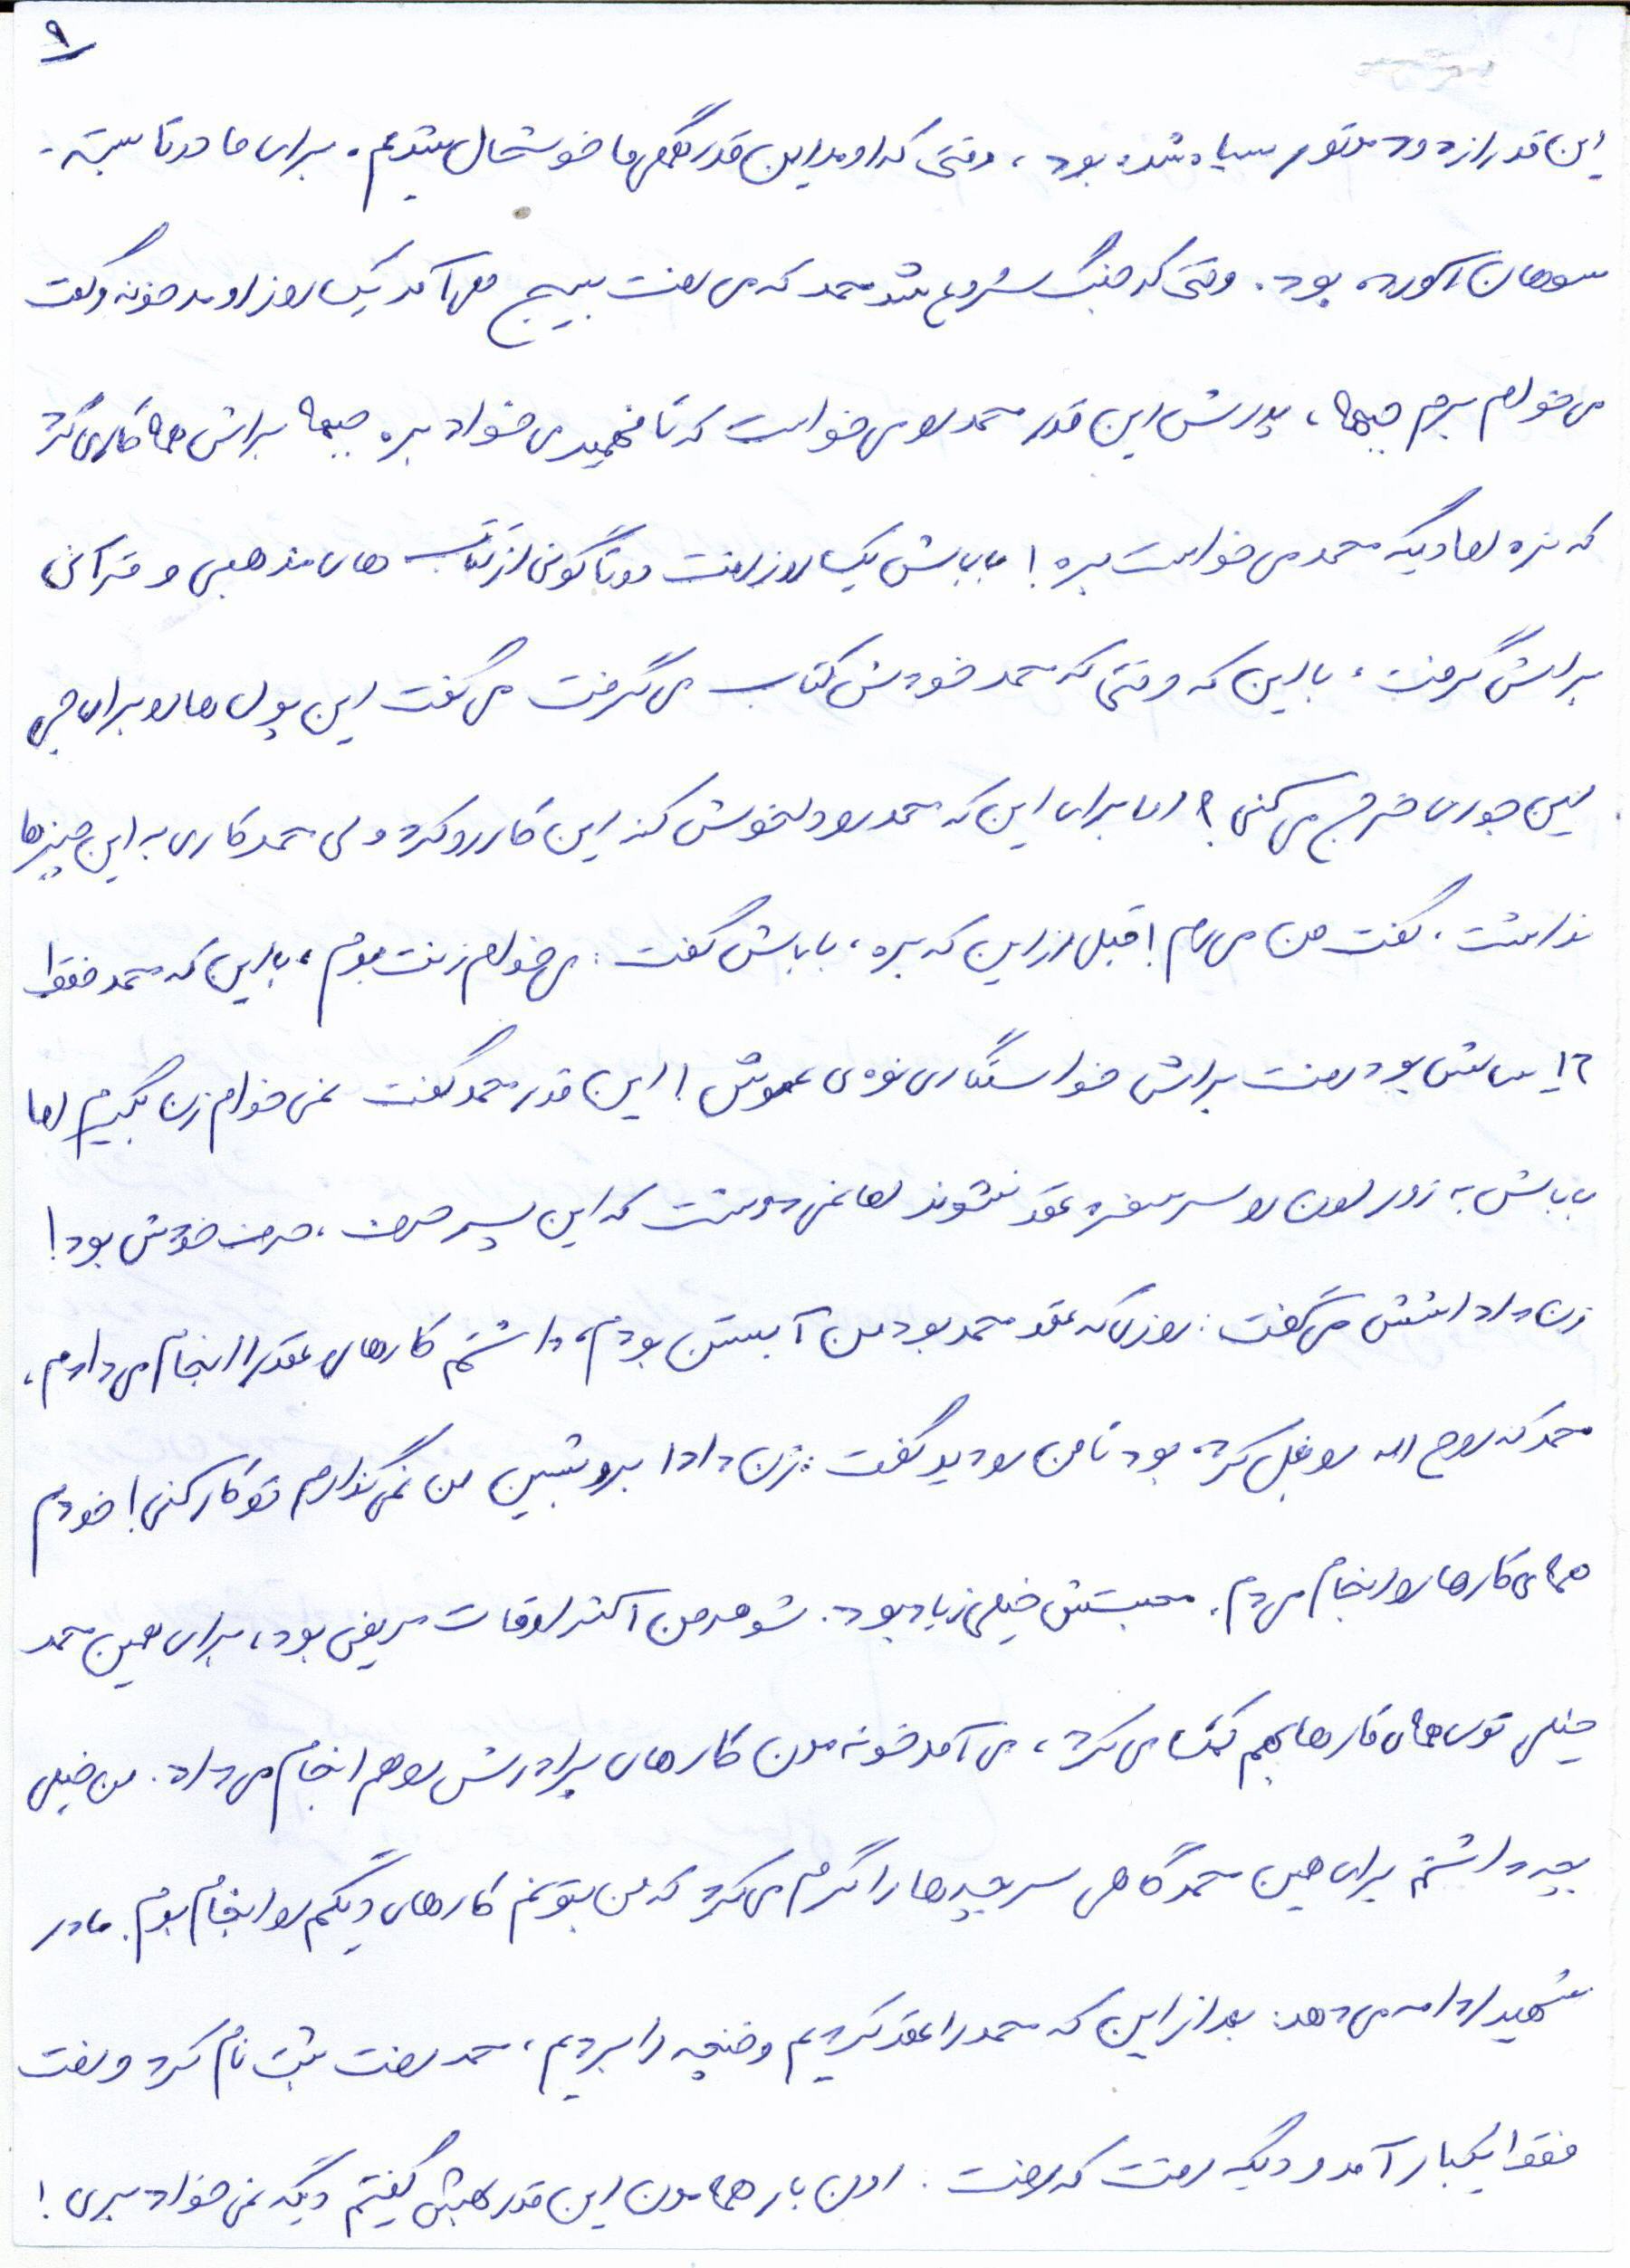 ۹
این قدر از دود موتور سیاه شده بود، وقتی که اومد این قدر همگی ما خوشحال شدیم. برای ما دو تا بسته
سوهان آورده بود. وقتی که جنگ شروع شد محمد که می رفت بسیج یک روز اومد خونه و گفت
می خوام برم جبهه، پدرش این قدر محمد رو می خواست که تا فهمید می خواد بره جبهه براش همه کاری کرد
که نره اما دیگه محمد می خواست بره! باباش یک روز رفت دو تا گونی از کتاب های مذهبی و قرآنی
براش گرفت، با این که وقتی که محمد خودش کتاب می گرفت می گفت این پول ها رو برای چی
این جوری خرج می کنی؟ اما برای این که محمد رو دلخوش کنه این کار رو کرد ولی محمد کاری به این چیزها
نداشت، گفت من می رم! قبل از این که بره، باباش گفت: می خوام زنت بدم، با این که محمد فقط
۱۶ سالش بود رفت براش خواستگاری نوه ی عموش! این قدر محمد گفت نمی خوام زن بگیرم اما
باباش به زور اون رو سر سفره عقد نشوند اما نمی دونست که این پسر حرف، حرف خودش بود!
زن داداشش می گفت: روزی که عقد محمد بود من آبستن بودم، داشتم کارهای عقد را انجام می دادم،
محمد که روح الله رو بغل کرده بود تا من رو دید گفت: زن دادا برو بشین من نمی گذارم تو کار کنی! خودم
همه ی کارها رو انجام می دم. محبتش خیلی زیاد بود. شوهر من اکثر اوقات مریض بود، برای همین محمد
خیلی توی همه ی کارها بهم کمک می کرد، می آمد خونه مون کارهای برادرش رو هم انجام می داد. من خیلی
بچه داشتم برای همین محمد گاهی سر بچه ها را گرم می کرد که من بتونم کارهای دیگم رو انجام بدم. مادر
شهید ادامه می دهد: بعد از این که محمد را عقد کردیم و خنچه را بردیم، محمد رفت ثبت نام کرد و رفت
فقط یکبار آمد و دیگه رفت که رفت. اون بار همه مون این قدر بهش گفتیم دیگه نمی خواد بری!